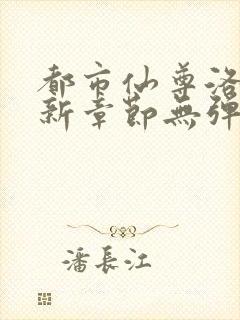 都市仙尊洛
新章節無彈
潘長江